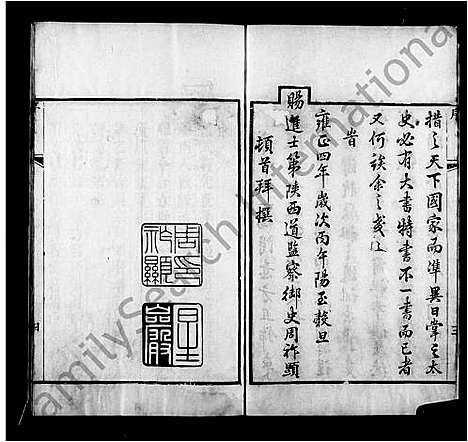 序
措之天下國家而準異日掌之太
史必有大書特書不一書而已者
又何俟余之
旹
雍正四年歲次丙午陽
穀旦
賜進士第陝西道監察御史周祚顯
頓首拜撰
周
祚顯
FamilySearch International